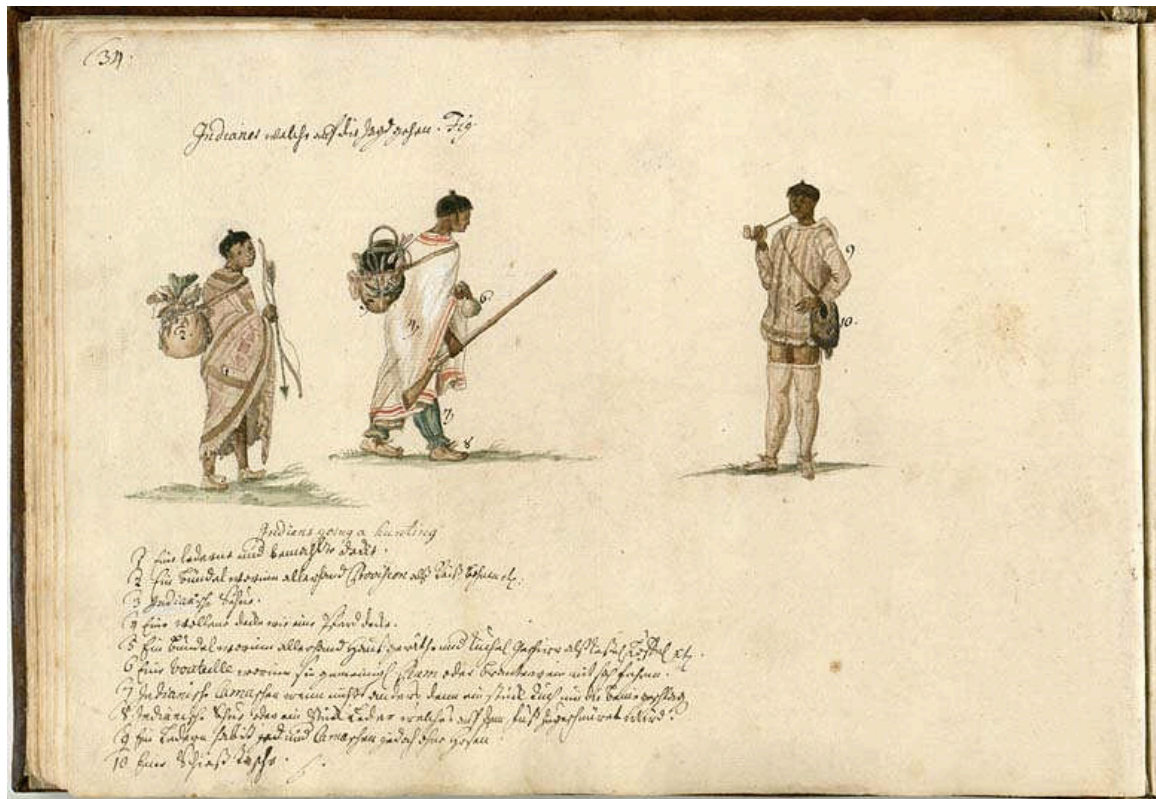 (34.
Indianer welche auf die Jagd gehen. Fig.
9
2
6
4
10.
1
7
8
Indians going a hunting
1 Eine lederne und bemahlte decke.
2 Ein bündel worinn allerhand Provision alß Reiß, bohnen etc.
3 Indianische Schue.
4 Eine wollene decke wie eine Pferd decke.
5 Ein bündel worinn allerhand Hauß geräthe und Küchel Geschirr alß Keßel Löffel etc.
6 Eine bouteille worinn sie gemeinigl. Rum oder brantewein mit sich führen.
7 Indianische Camaschen nichts anders denn ein stück tuch um die beine
8 Indianische Schue oder ein Stück Leder welches auf dem fuß zugeschnüret wird.
9 Ein Ledern habit und Camaschen jedoch ohne hosen
10 Eine Schieß tasche.